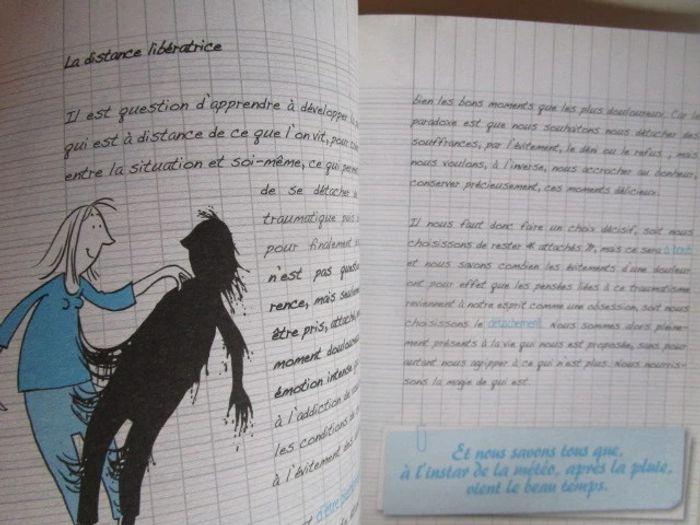 La distance libératrice
Il est question d'apprendre à développer
qui est à distance de ce que l'on vit, pour
entre la situation et soi-même, ce qui
de se détacher
traumatique puis
pour finalement
n'est pas
rence, mais seulement
être pris,
moment
émotion intense
à l'addiction de
les conditions de
à l'évitement des
bien les bons moments que les plus douloureux. Car
paradoxe est que nous souhaitons nous détacher des
souffrances, par l'évitement, le déni ou le refus, mais
nous voulons, à l'inverse, nous accrocher au bonheur,
conserver précieusement, ces moments délicieux.
Il nous faut donc faire un choix décisif, soit nous
choisissons de rester « attachés », mais ce sera
et nous savons combien les évitements d'une douleur
ont pour effet que les pensées liées à ce traumatisme
reviennent à notre esprit comme une obsession, soit nous
choisissons le détachement. Nous sommes alors pleine-
ment présents à la vie qui nous est proposée, sans pour
autant nous agripper à ce qui n'est plus. Nous nourris-
sons la magie de qui est.
Et nous savons tous que,
à l'instar de la météo, après la pluie,
vient le beau temps.